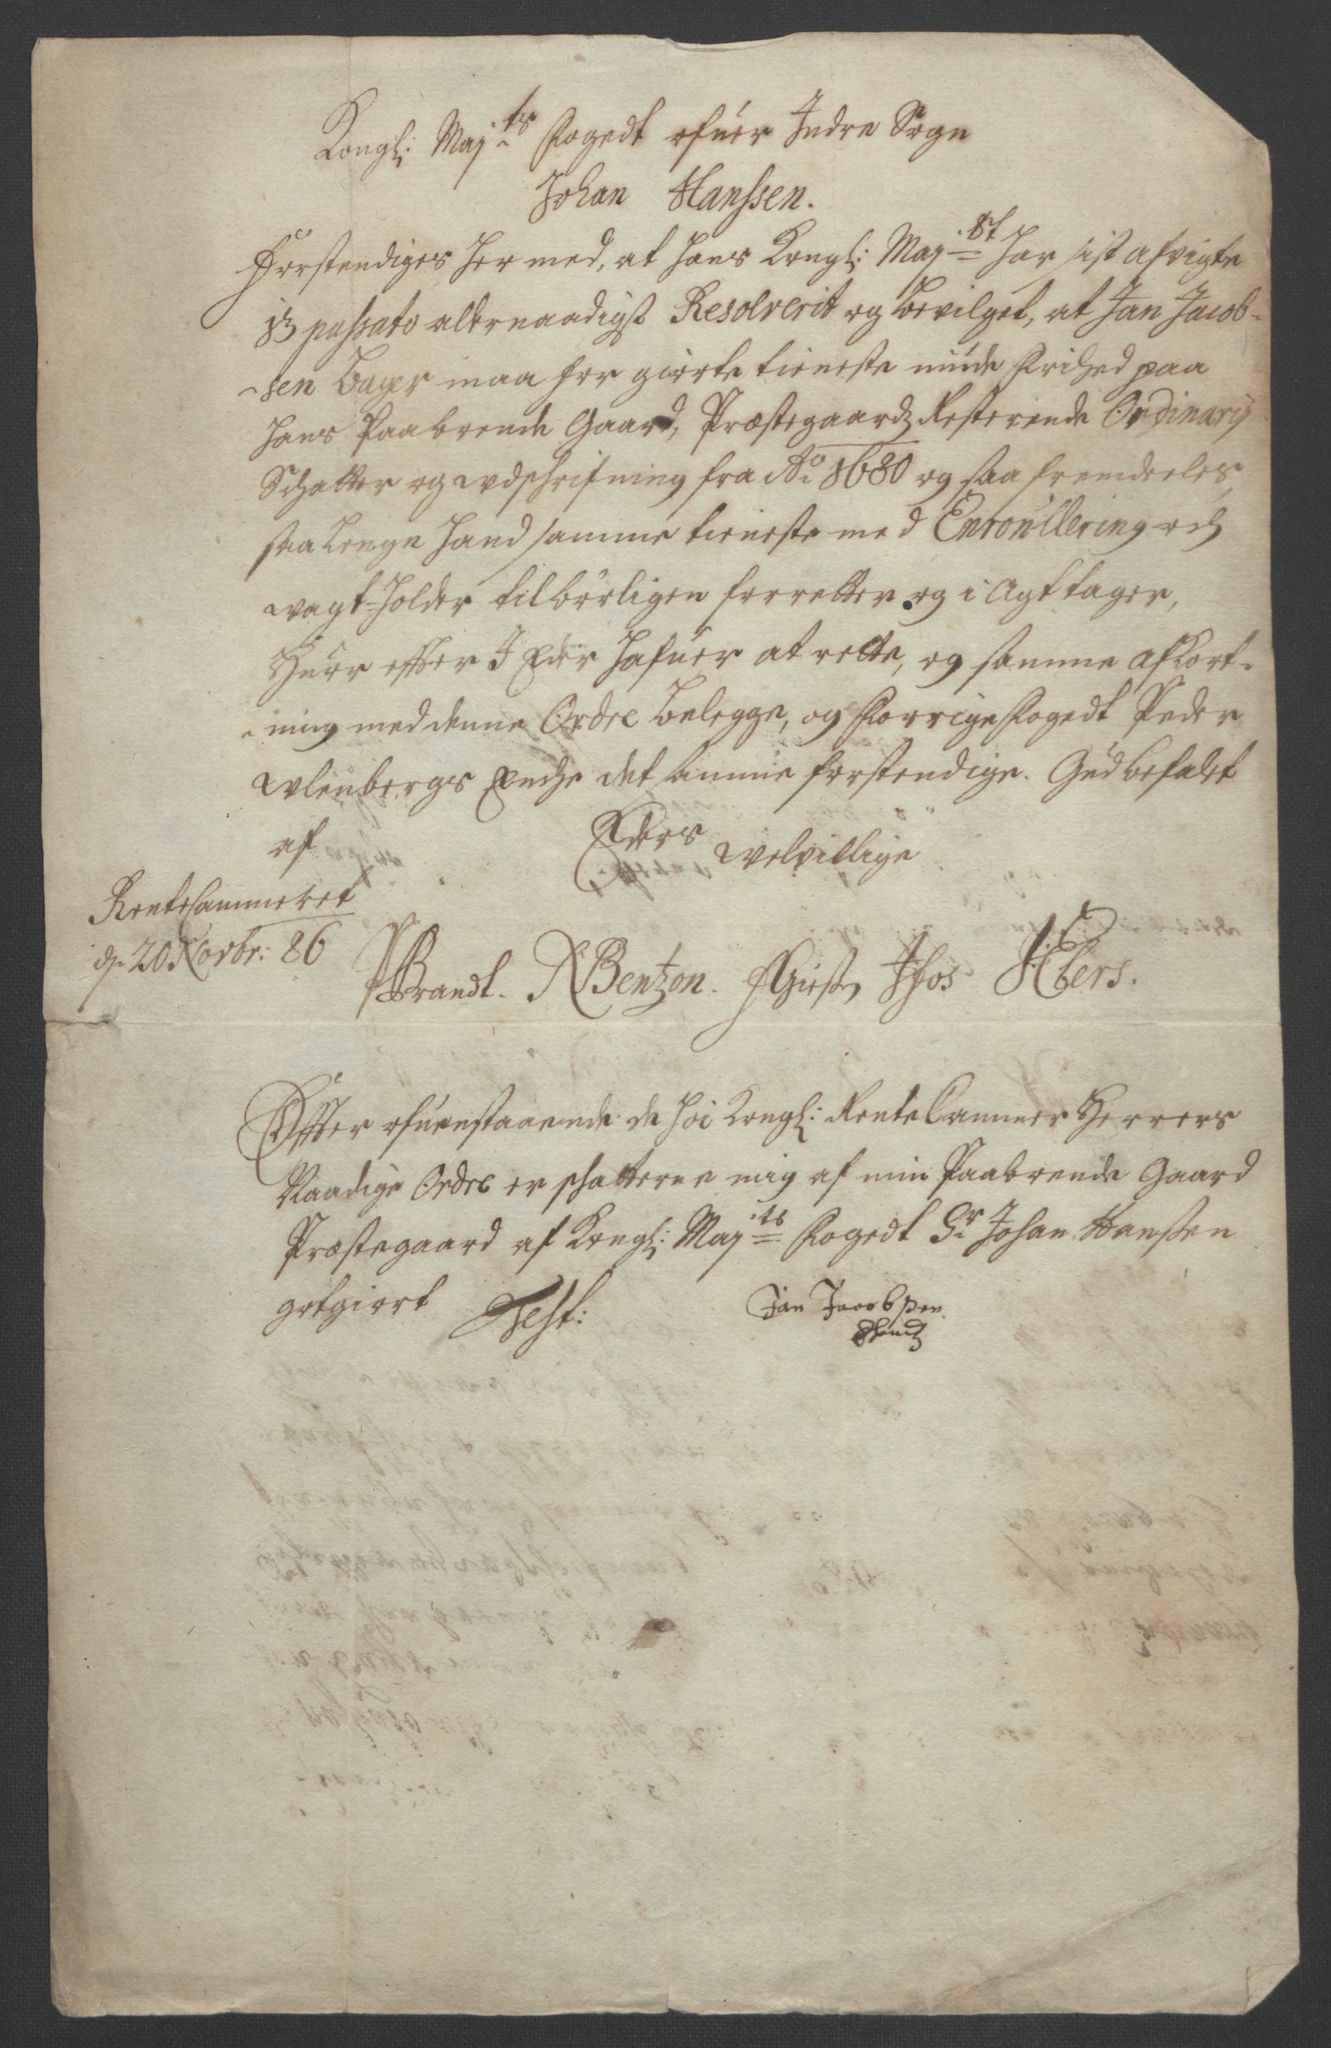 Kongl: Maj:ts Fogedt ofuer Indre Sogn
Johan Hanssen.
Forstendiges her med, at hans Kongl: Maj:st har sist afvigte
13 passato allernaadigst Resolverit og bevilget, at Jan Jacob-
-sen Bager maa for giorte tieneste niude Frihed paa
hans Paaboende Gaard, Præstegaardz Resterende Ordinarij
Schatter og udschrifning fra Ao 1680 og saa fremdeeles,
saa lenge hand samme tieneste med Enroullering och
vagt-holder tilbørligen forretter og i Agt tager,
Huor effter I Eder hafuer at rette, og samme afkort-
-ning med denne Ordre belegge, og Forrige Fogedt Peder
Wlenbergs Enche det samme forstendige. Gud befalet
af
Eders velvillige
RenteCammeret
dp. 20 Novbr: 86
PBrandt. NBentzon. Thos
Effter ofuenstaaende de høi Kongl: RenteCammer Herrers
Naadige Ordre er schatterne mig af min Paaboende Gaard
Præstegaard af Kongl: Maj:ts Fogedt Sr Johan Hanssen
gotgiort Test:
Jan Jacobssen